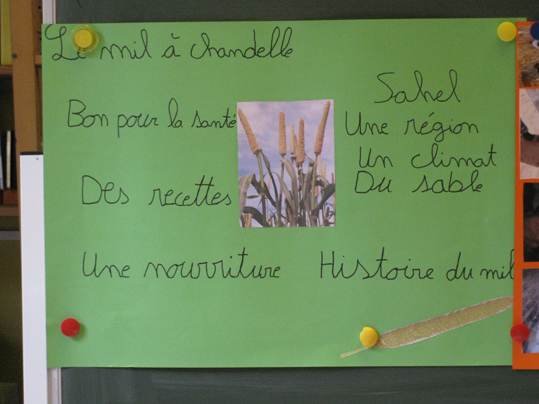 Le mil à chandelle
Bon pour la santé
Des recettes
Une nourriture
Sahel
Une région
Un climat
Du sable
Histoire du mil